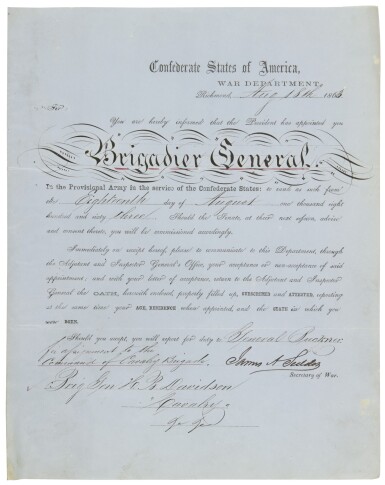 Confederate States of America,
WAR DEPARTMENT,
Richmond, Aug 18th 1863
Sir
You are hereby informed that the President has appointed you
Brigadier General
In the Provisional Army in the service of the Confederate States: to rank as such from
the Eighteenth day of August one thousand eight
hundred and sixty three. Should the Senate, at their next session, advise
and consent thereto, you will be commissioned accordingly.
Immediately on receipt hereof, please to communicate to this Department, through
the Adjutant and Inspector General's Office, your acceptance or non-acceptance of said
appointment; and with your letter of acceptance, return to the Adjutant and Inspector
General the OATH, herewith enclosed, properly filled up, SUBSCRIBED and ATTESTED, reporting
at the same time your AGE, RESIDENCE when appointed, and the STATE in which you
were BORN.
Should you accept, you will report for duty to General Buckner
for assignment to the
command of Cavalry Brigade.
James A Seddon
Secretary of War.
Brig Gen H B Davidson
Cavalry